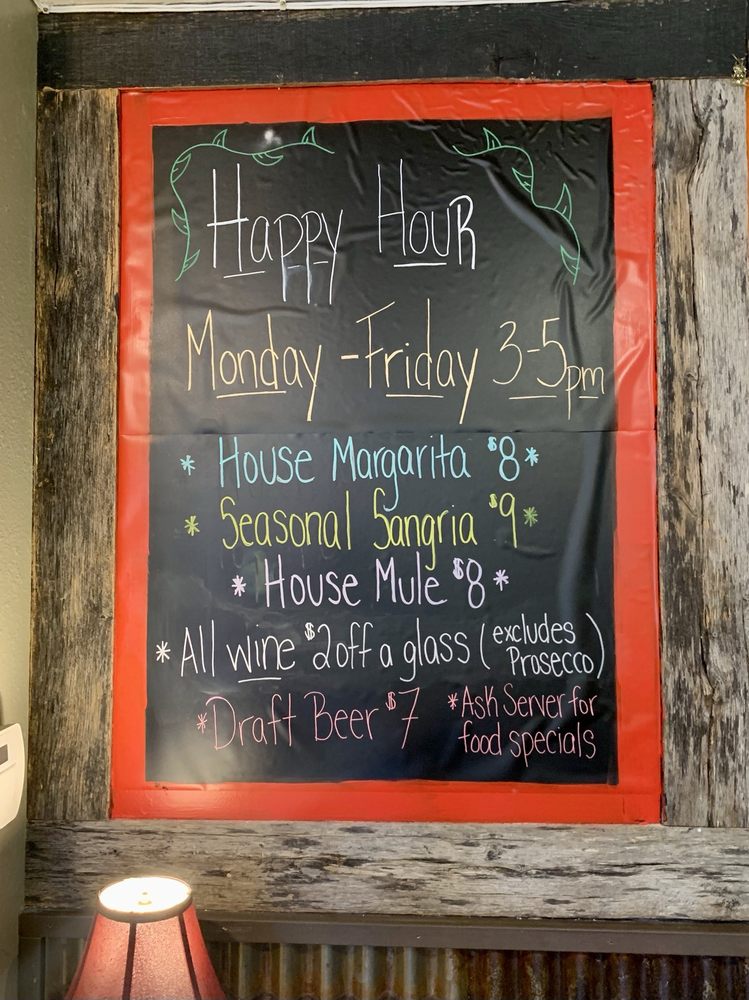 Happy Hour
Monday - Friday 3-5pm
* House Margarita $8 *
* Seasonal Sangria $9 *
* House Mule $8 *
* All wine $2 off a glass (excludes Prosecco)
* Draft Beer $7
*Ask Server for
food specials